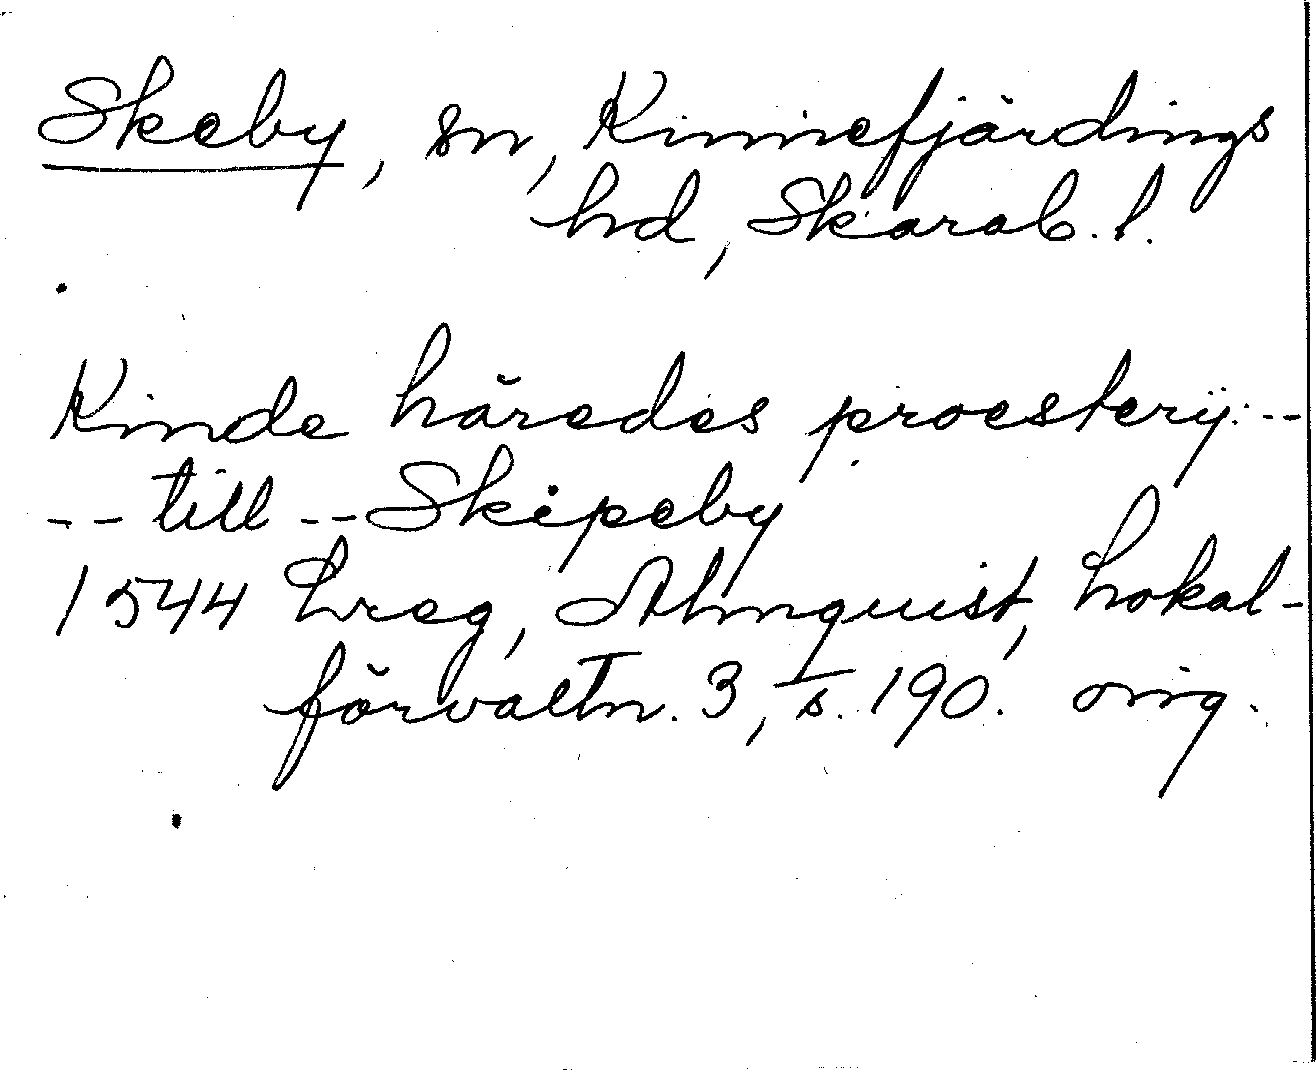 Skeby, sn, Kinnefjärdings
hd, Skarab. l.
Kinde häredes proesterÿ: --
-- till -- Skipeby
1544 Lreg, Almquist, Lokal-
förvaltn. 3, s. 190. orig.